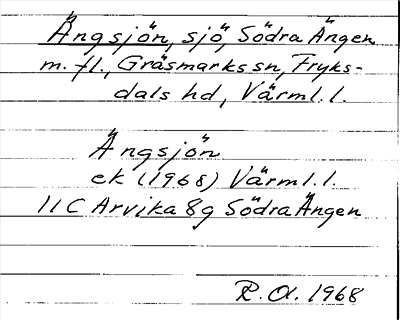 Ängsjön, sjö, Södra Ängen
m. fl., Gräsmarks sn, Fryks-
dals hd, Värml. l.
Ängsjön
ek (1968) Värml. l.
11C Arvika 8g Södra Ängen
R. O. 1968